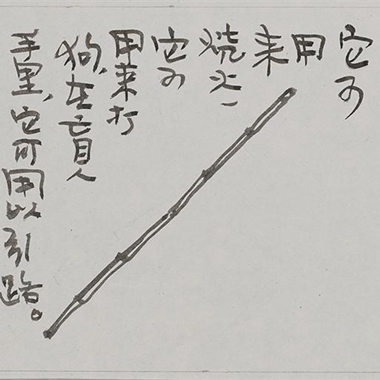 它可
用
来
烧火、
它可
用来打
狗,在盲人
手里,它可用以引路。